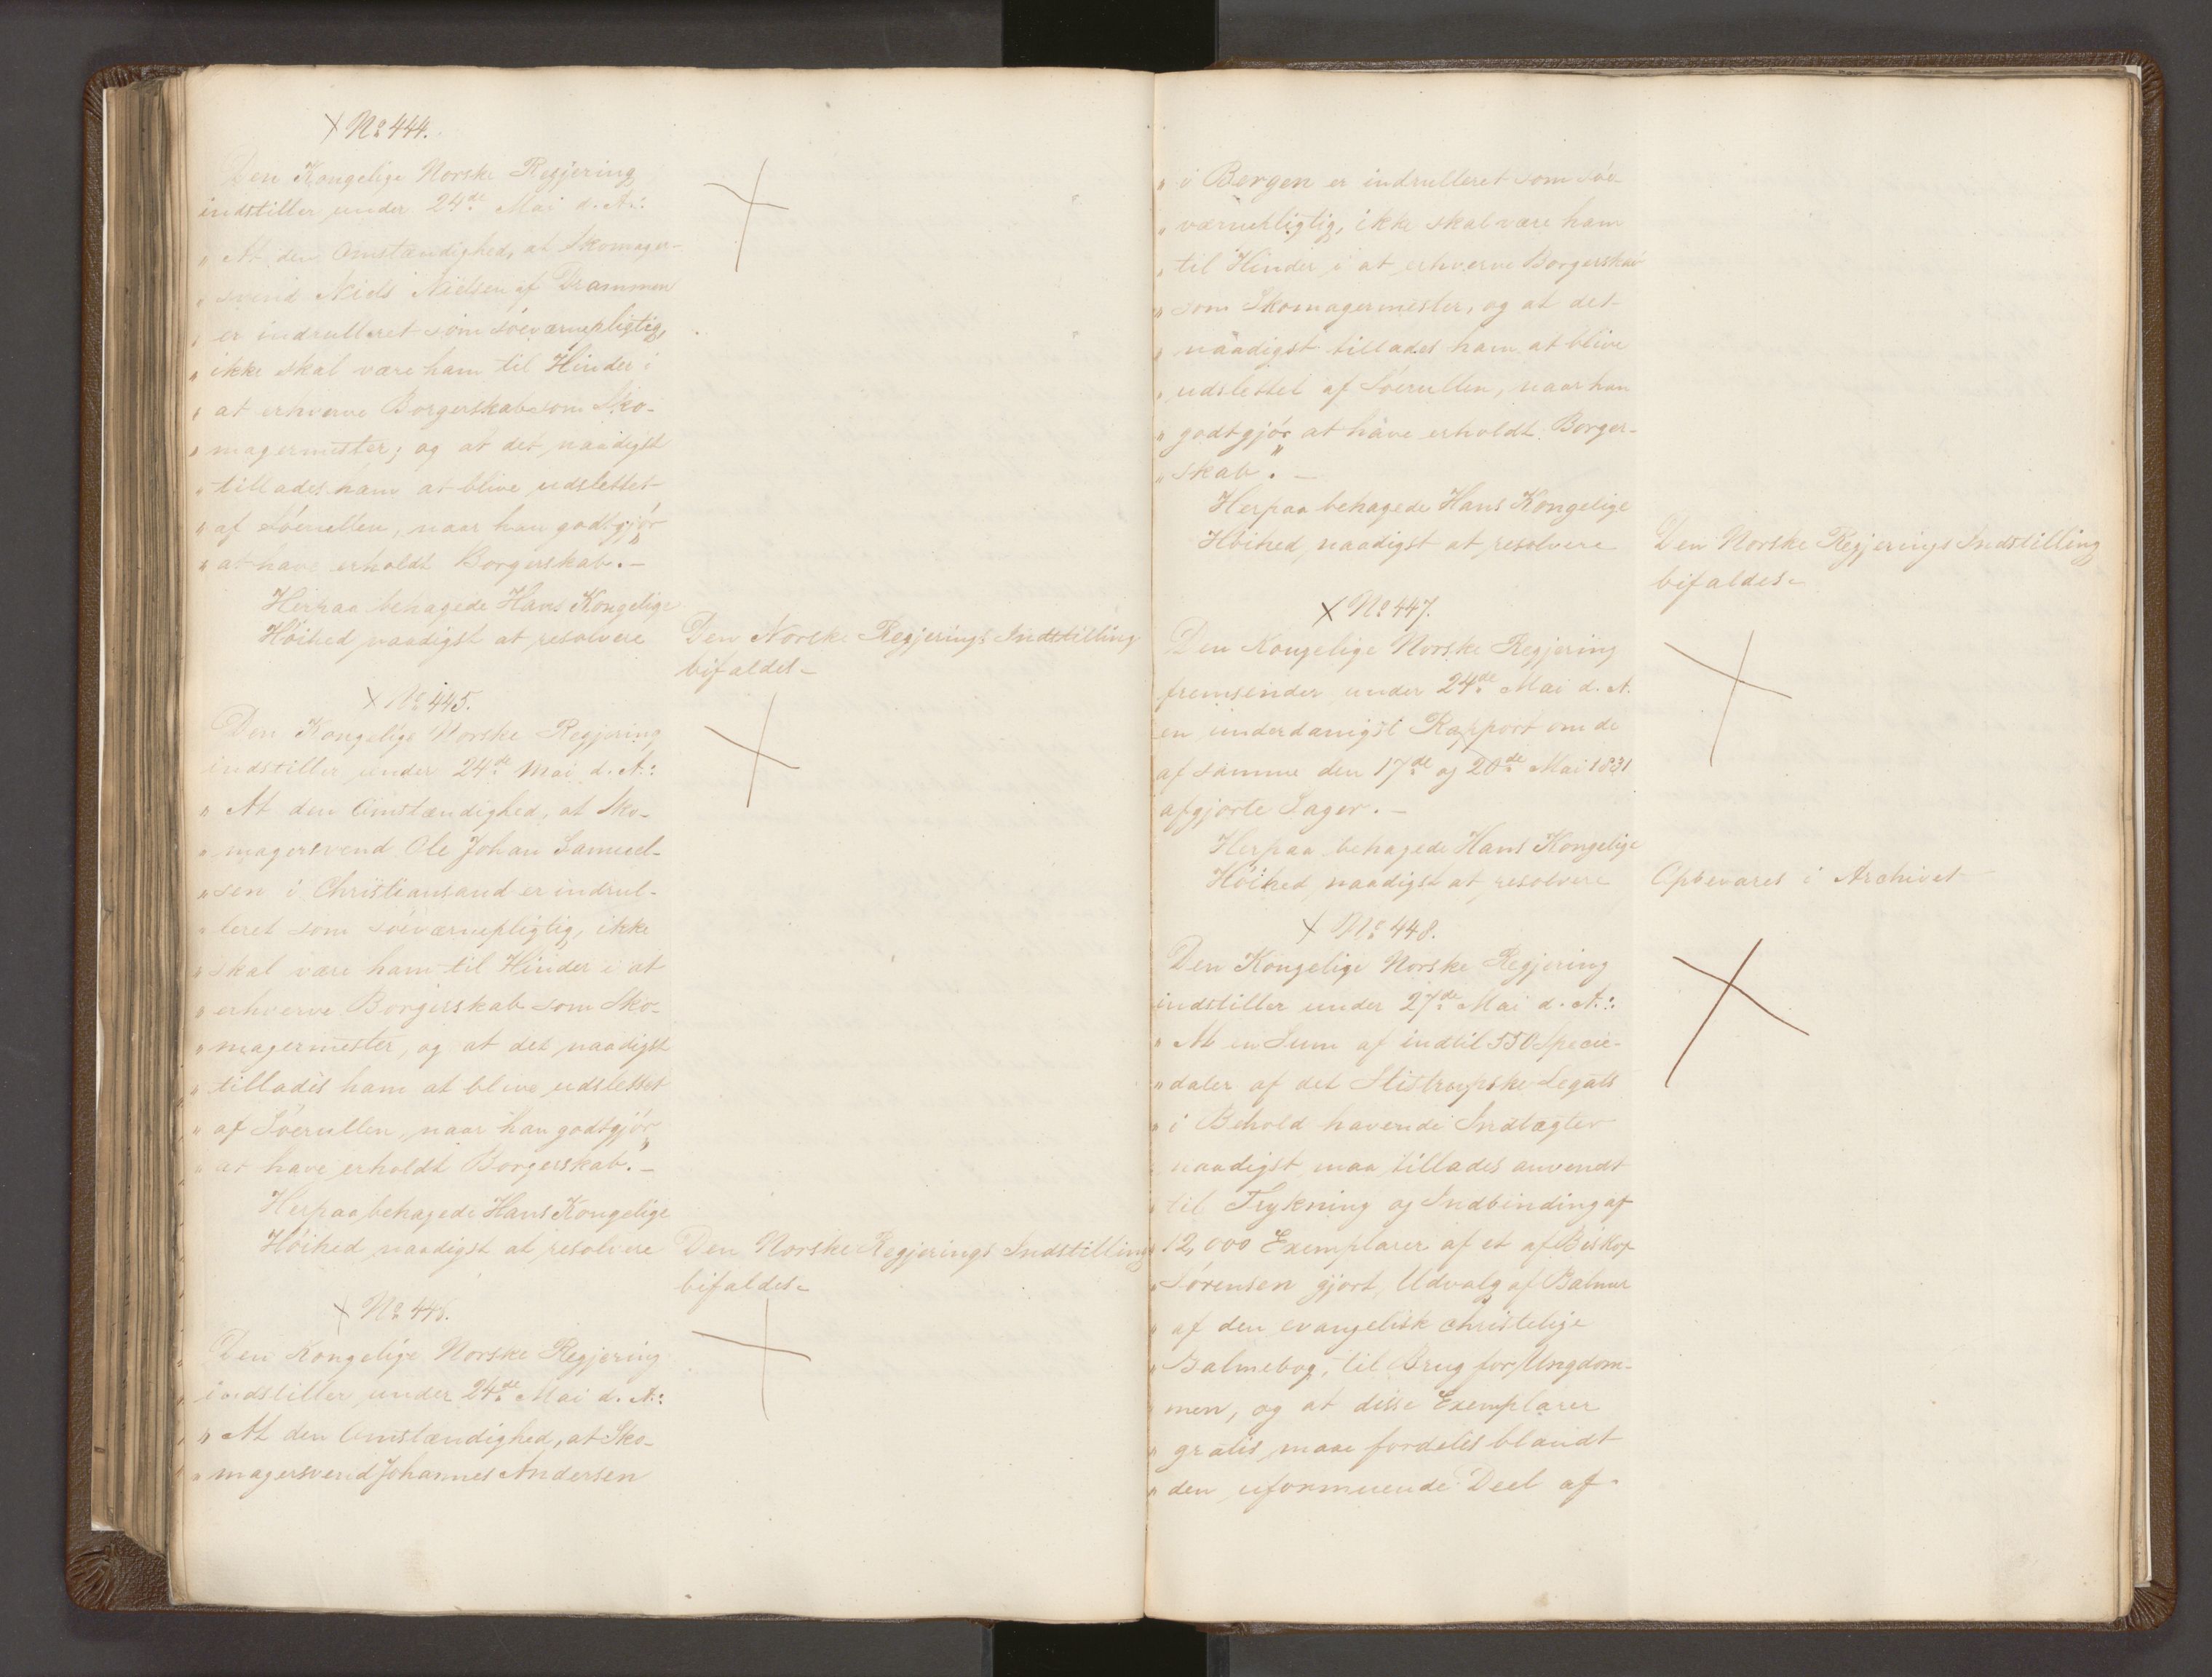 × No 444.
Den Kongelige Norske Regjering
indstiller under 24de Mai d. A.:
„ At den Omstændighed, at Skomager-
„ svend Niels Nielsen af Drammen
„ er indrulleret som söeværnepligtig,
„ ikke skal være ham til Hinder i
„ at erhverve Borgerskab som Sko-
„ magermester; og at det naadigst
„ tillades ham at blive udslettet
„ af Söerullen, naar han godtgjör
„ at have erholdt Borgerskab."–
Herpaa behagede Hans Kongelige
Höihed naadigst at resolvere
Den Norske Regjerings Indstilling
bifaldes–
× No 445.
Den Kongelige Norske Regjering
indstiller under 24de Mai d. A.:
„ At den Omstændighed, at Sko-
„ magersvend Ole Johan Samuel-
„ sen i Christiansand er indrul-
„ leret som söeværnepligtig, ikke
„ skal være ham til Hinder i at
„ erhverve Borgerskab som Sko-
„ magermester, og at det naadigst
„ tillades ham at blive udslettet
„ af Söerullen, naar han godtgjör
„ at have erholdt Borgerskab."–
Herpaa behagede Hans Kongelige
Höihed naadigst at resolvere
Den Norske Regjerings Indstilling
bifaldes–
× No 446.
Den Kongelige Norske Regjering
indstiller under 24de Mai d. A.:
„ At den Omstændighed, at Sko-
„ magersvend Johannes Andersen
„ i Bergen er indrulleret som söe-
„ værnepligtig, ikke skal være ham
„ til Hinder i at erhverve Borgerskab
„ som Skomagermester, og at det
„ naadigst tillades ham at blive
„ udslettet af Söerullen, naar han
„ godtgjör at have erholdt Borger-
„ skab."–
Herpaa behagede Hans Kongelige
Höihed naadigst at resolvere
Den Norske Regjerings Indstilling
bifaldes–
× No 447.
Den Kongelige Norske Regjering
fremsender under 24de Mai d. A.
en underdanigst Rapport om de
af samme den 17de og 20de Mai 1831
afgjorte Sager.–
Herpaa behagede Hans Kongelige
Höihed naadigst at resolvere
Opbevares i Archivet
× No 448.
Den Kongelige Norske Regjering
indstiller under 27de Mai d. A.:
„ At en Sum af indtil 550 Specie-
„ daler af det Stistrupske Legats
„ i Behold havende Indtægter
„ naadigst maa tillades anvendt
„ til Trykning og Indbinding af
„ 12,000 Exemplarer af et af Biskop
„ Sörensen gjort Udvalg af Psalmer
„ af den evangelisk christelige
„ Psalmebog, til Brug for Ungdom-
„ men, og at disse Exemplarer
„ gratis maae fordeles blandt
„ den uformuende Deel af